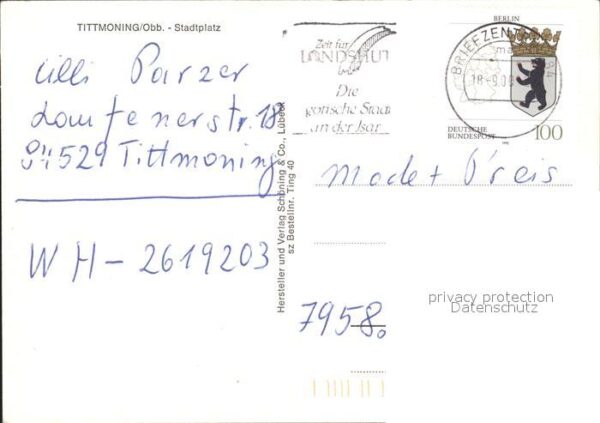 TITTMONING/Obb. - Stadtplatz
Cilli Parzer
Laufenerstr. 18
84529 Tittmoning
W H - 2619203
Hersteller und Verlag Schöning & Co., Lübeck
sz Bestellnr. Ting 40
Zeit für
LANDSHUT
Die
gotische Stadt
an der Isar
BRIEFZENTR
84
18.-9.00
BERLIN
DEUTSCHE
BUNDESPOST
100
Mode + Preis
7958
privacy protection
Datenschutz